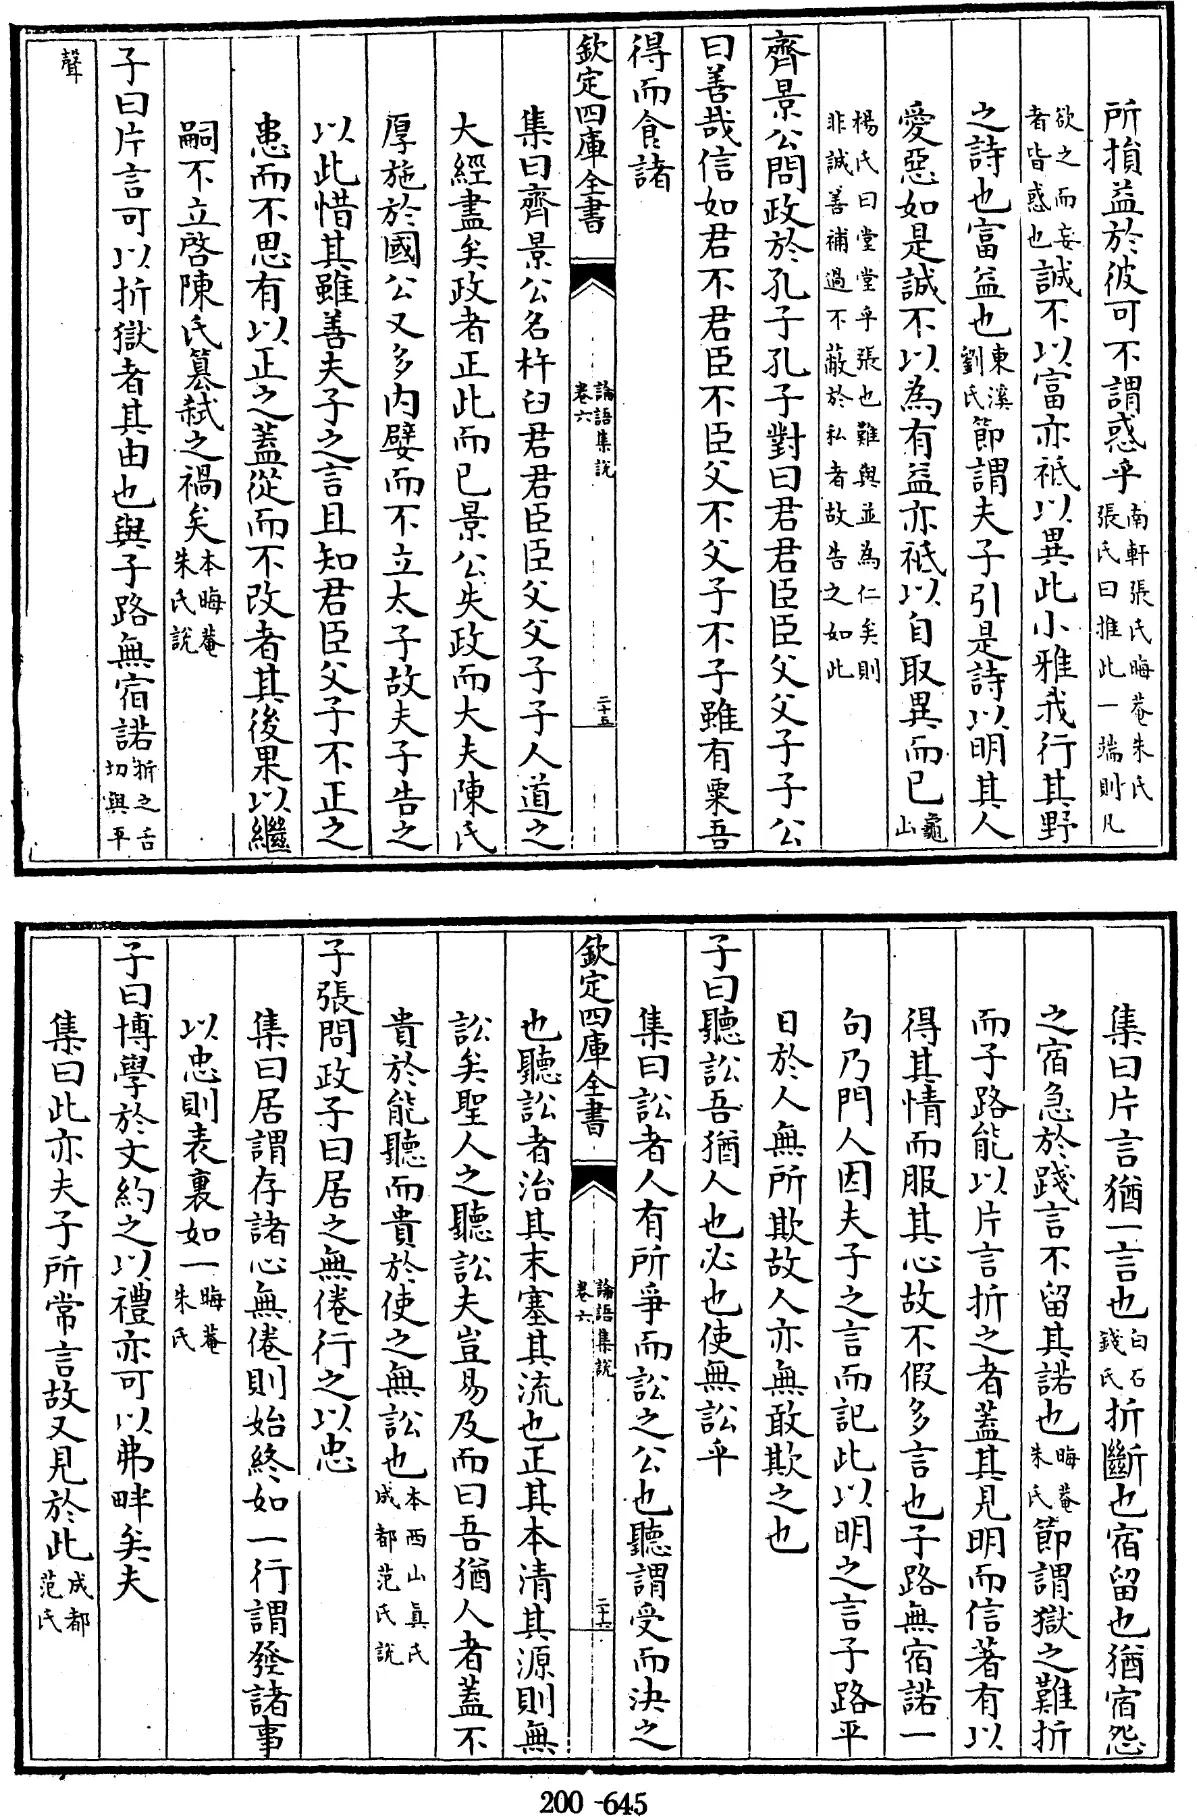 所損益於彼可不謂惑乎南軒張氏晦菴朱氏張氏曰推此一端則凡
欲之而妄者皆惑也誠不以富亦祗以異此小雅我行其野
之詩也富益也東溪劉氏節謂夫子引是詩以明其人
愛惡如是誠不以為有益亦祗以自取異而已龜山
楊氏曰堂堂乎張也難與並為仁矣則非誠善補過不蔽於私者故告之如此
齊景公問政於孔子孔子對曰君君臣臣父父子子公
曰善哉信如君不君臣不臣父不父子不子雖有粟吾
得而食諸
欽定四庫全書 論語集説卷六 二十五
集曰齊景公名杵臼君君臣臣父父子子人道之
大經盡矣政者正此而已景公失政而大夫陳氏
厚施於國公又多內嬖而不立太子故夫子告之
以此惜其雖善夫子之言且知君臣父子不正之
患而不思有以正之蓋從而不改者其後果以繼
嗣不立啓陳氏簒弑之禍矣本晦菴朱氏説
子曰片言可以折獄者其由也與子路無宿諾折之舌切與平
聲
集曰片言猶一言也白石錢氏折斷也宿留也猶宿怨
之宿急於踐言不留其諾也晦菴朱氏節謂獄之難折
而子路能以片言折之者蓋其見明而信著有以
得其情而服其心故不假多言也子路無宿諾一
句乃門人因夫子之言而記此以明之言子路平
日於人無所欺故人亦無敢欺之也
子曰聽訟吾猶人也必也使無訟乎
集曰訟者人有所爭而訟之公也聽謂受而決之
欽定四庫全書 論語集説卷六 二十六
也聽訟者治其末塞其流也正其本清其源則無
訟矣聖人之聽訟夫豈易及而曰吾猶人者蓋不
貴於能聽而貴於使之無訟也本西山真氏成都范氏説
子張問政子曰居之無倦行之以忠
集曰居謂存諸心無倦則始終如一行謂發諸事
以忠則表裏如一晦菴朱氏
子曰博學於文約之以禮亦可以弗畔矣夫
集曰此亦夫子所常言故又見於此成都范氏
200-645